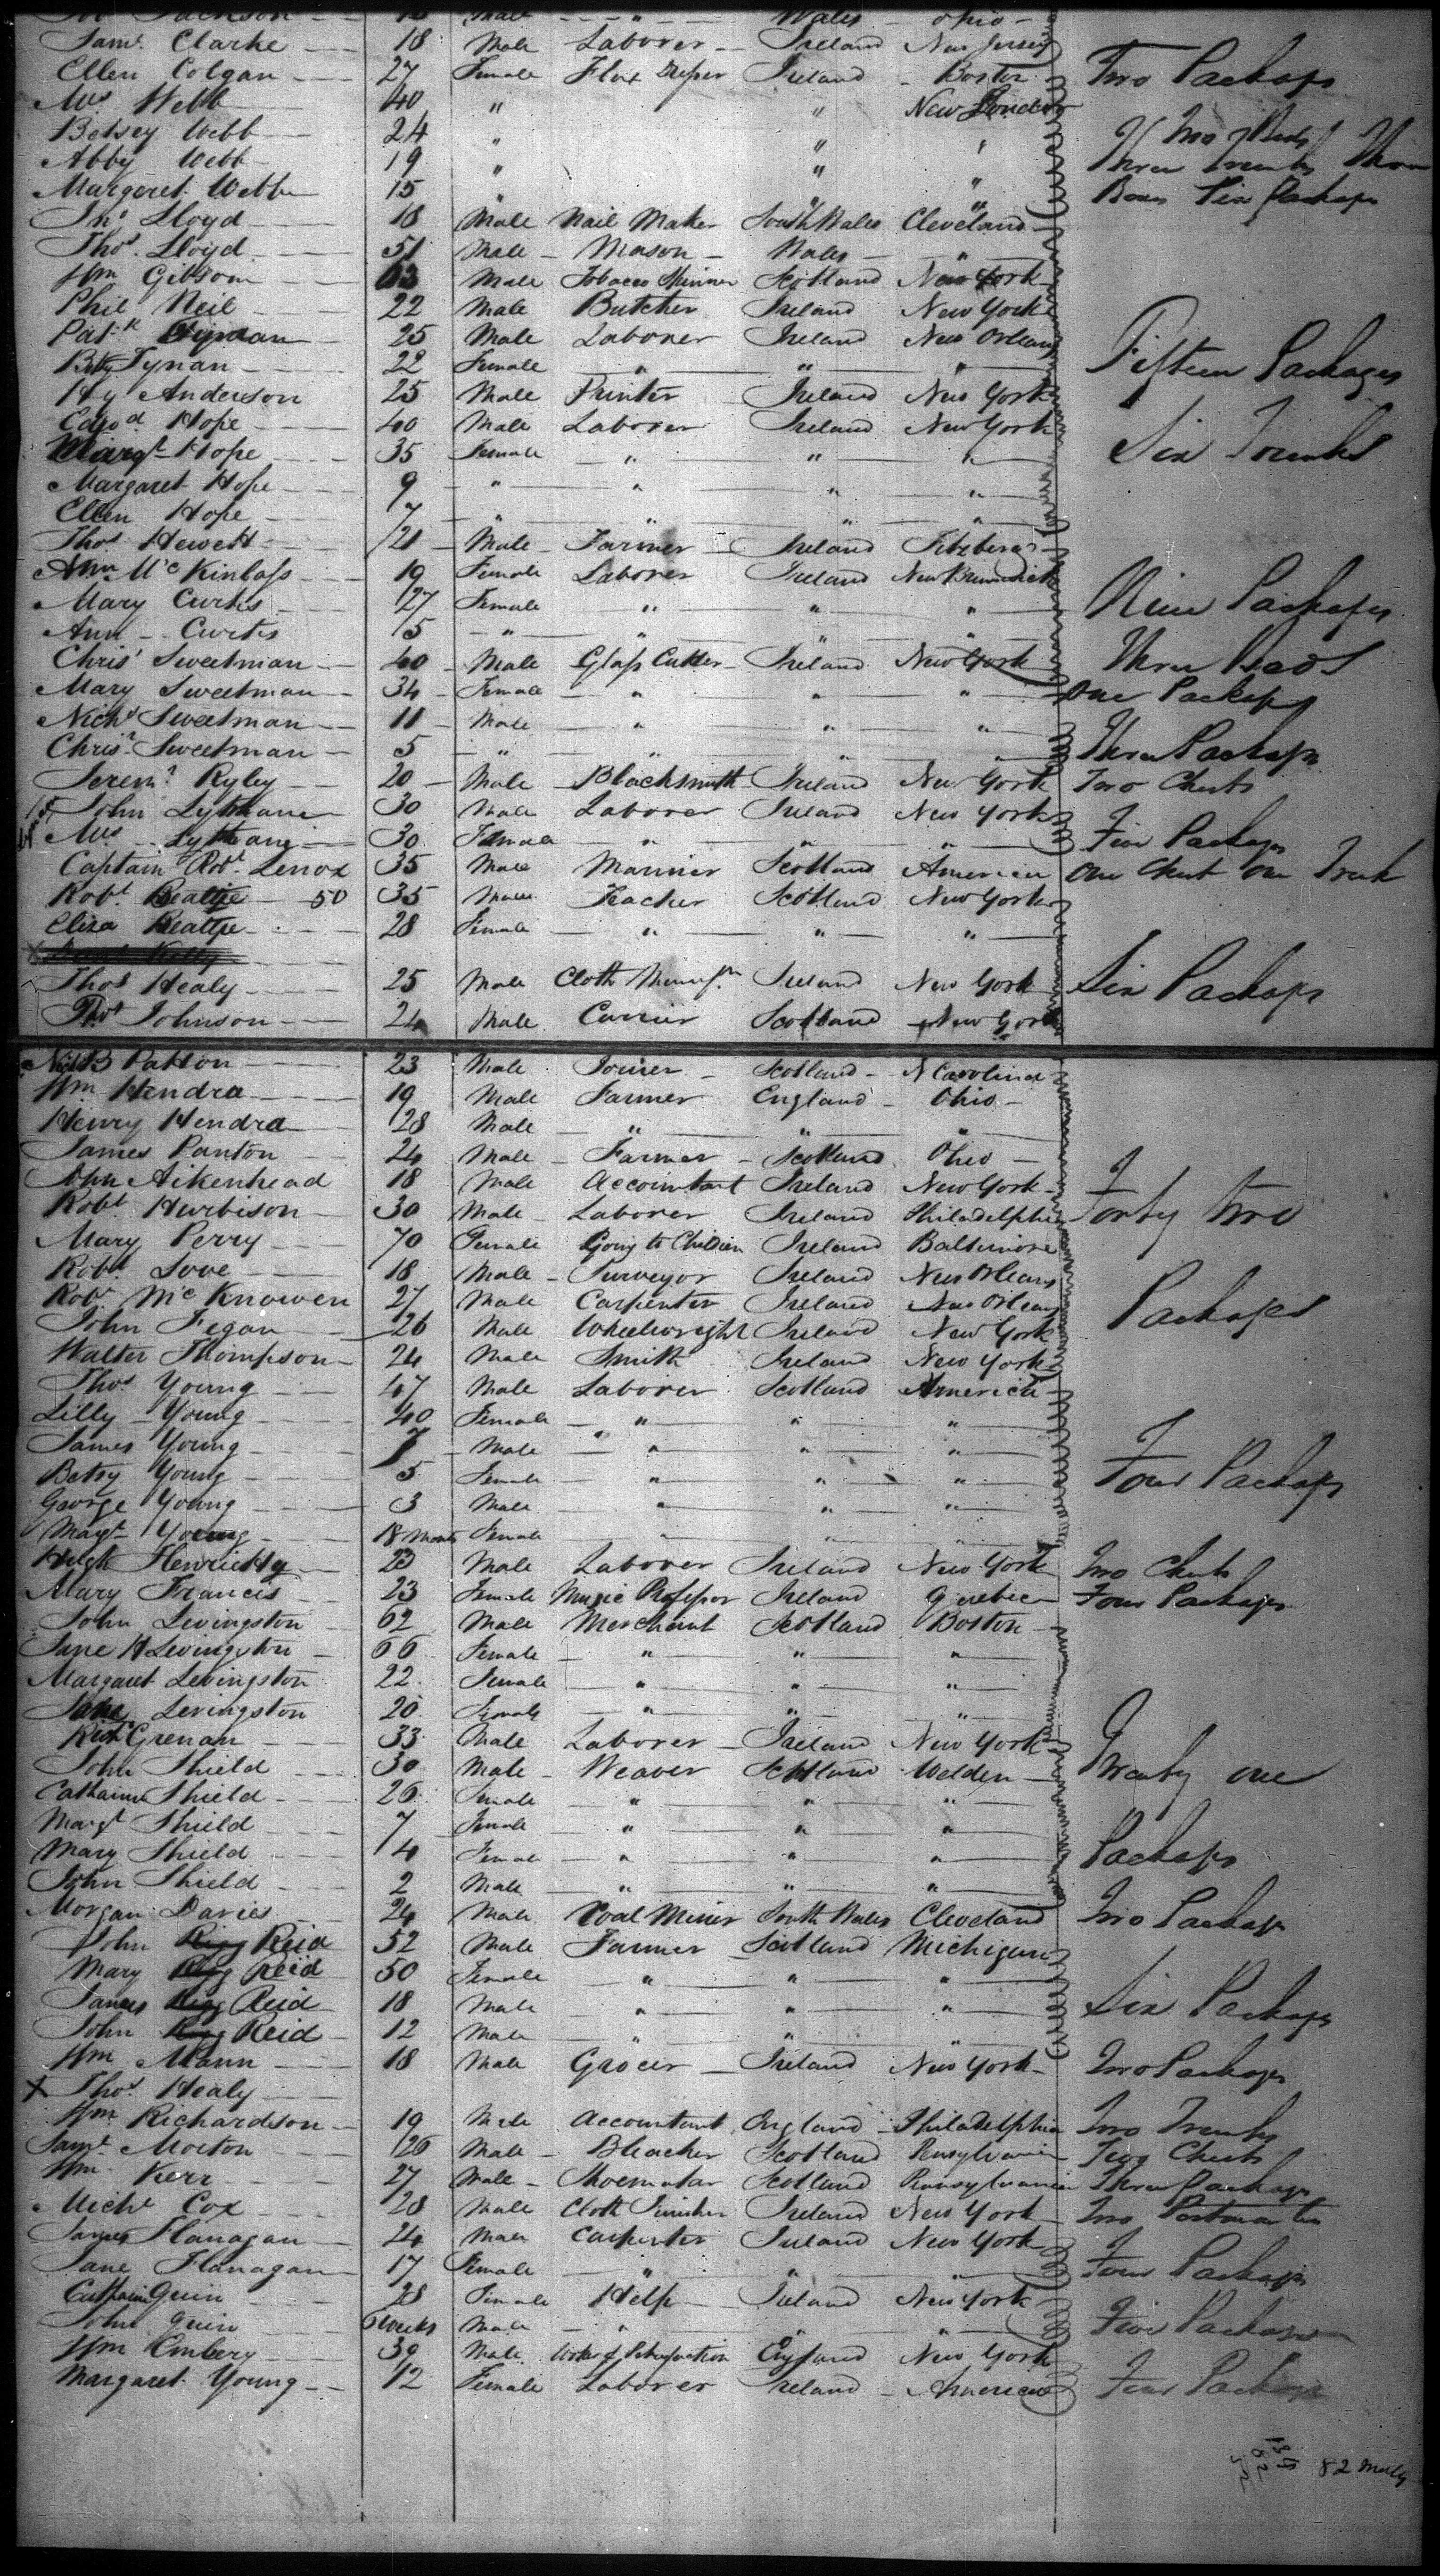 Jackson 18 Male " Wales Ohio
Saml. Clarke 18 Male Laborer Ireland New Jersey
Ellen Colgan 27 Female Flax Ireland Boston Two Packages
Mrs Webb 40 " " New London
Betsey Webb 24 " " " Two Beds
Abby Webb 19 " " Three Trunks Three
Margaret Webb 15 " " Boxes Six Packages
Jno Lloyd 18 Male Nail Maker South Wales Cleveland
Thos. Lloyd 51 Male Mason Wales "
Wm Gibson Male Tobacco Spinner Scotland New York
Phil Neil 22 Male Butcher Ireland New York
Patk 25 Male Laborer Ireland New Orleans
Betty Tynan 22 Female " " " Fifteen Packages
Hy Anderson 25 Male Printer Ireland New York
Edwd Hope 40 Male Laborer Ireland New York
Margt Hope 35 Female " " " Six Trunks
Margaret Hope 9 " " " "
Ellen Hope 7 " " " "
Thos Hewett 21 Male Farmer Ireland
Ann McKinlass 19 Female Laborer Ireland New Brunswick
Mary Curtis 27 Female " " " Nine Packages
Ann Curtis 5 " " " "
Chrisr Sweetman 40 Male Glass Cutter Ireland New York Three Beds
Mary Sweetman 34 Female " " " One Package
Nichs Sweetman 11 Male " " "
Chrisr. Sweetman 5 " " " " Three Packages
Jeremh Ryley 20 Male Blacksmith Ireland New York Two Chests
John 30 Male Laborer Ireland New York
Mrs 30 Female " " " Five Packages
Captain Robt. Lenox 35 Male Mariner Scotland America One Chest One Trunk
Robt. Beattye 50 35 Male Teacher Scotland New York
Eliza Beattye 28 Female " " "
X
Thos Healy 25 Male Cloth Manufr. Ireland New York Six Packages
Thos Johnson 24 Male Currier Scotland New York
Patton 23 Male Joiner Scotland N Carolina
Wm Hendra 19 Male Farmer England Ohio
Henry Hendra 28 Male " " "
James Panton 24 Male Farmer Scotland Ohio
John Aikenhead 18 Male Accountant Ireland New York
Robt. Hurbison 30 Male Laborer Ireland Philadelphia Forty two
Mary Perry 70 Female Going to Children Ireland Baltimore
Robt. Love 18 Male Surveyor Ireland New Orleans
Robt McKnowen 27 Male Carpenter Ireland New Orleans Packages
John Fegan 26 Male Wheelwright Ireland New York
Walter Thompson 24 Male Smith Ireland New York
Thos. Young 47 Male Laborer Scotland America
Lilly Young 40 Female " " "
James Young 7 Male " " "
Betsy Young 5 Female " " " Four Packages
George Young 3 Male " " "
Magt Young 18 Months Female " " "
Hugh 23 Male Laborer Ireland New York Two Chests
Mary Francis 23 Female Music Professor Ireland Quebec Four Packages
John Levingston 62 Male Merchant Scotland Boston
Jane H Levingston 66 Female " " "
Margaret Levingston 22 Female " " "
Levingston 20 Female " " "
Grenan 33 Male Laborer Ireland New York
John Shield 30 Male Weaver Scotland Welden Twenty one
Catharine Shield 26 Female " " "
Margt Shield 7 Female " " "
Mary Shield 4 Female " " " Packages
John Shield 2 Male " " "
Morgan Davies 24 Male Coal Miner South Wales Cleveland Two Packages
John Reid 52 Male Farmer Scotland Michigan
Mary Reid 50 Female " " "
James Reid 18 Male " " " Six Packages
John Reid 12 Male " " "
Wm Mann 18 Male Grocer Ireland New York Two Packages
X Thos. Healy
Wm Richardson 19 Male Accountant England Philadelphia Two Trunks
Saml. Morton 26 Male Bleacher Scotland Pensylvania Two Chests
Wm Kerr 27 Male Shoemaker Scotland Pennsylvania Three Packages
Michl Cox 28 Male Cloth Finisher Ireland New York Two
James Flanagan 24 Male Carpenter Ireland New York
Jane Flanagan 17 Female " " " Four Packages
Catharine Guin 28 Female Help Ireland New York
John Guin 6 Weeks Male " " " Five Packages
Wm Embery 39 Male England New York
Margaret Young 12 Female Laborer Ireland America Four Packages
134
82
52
82 Males